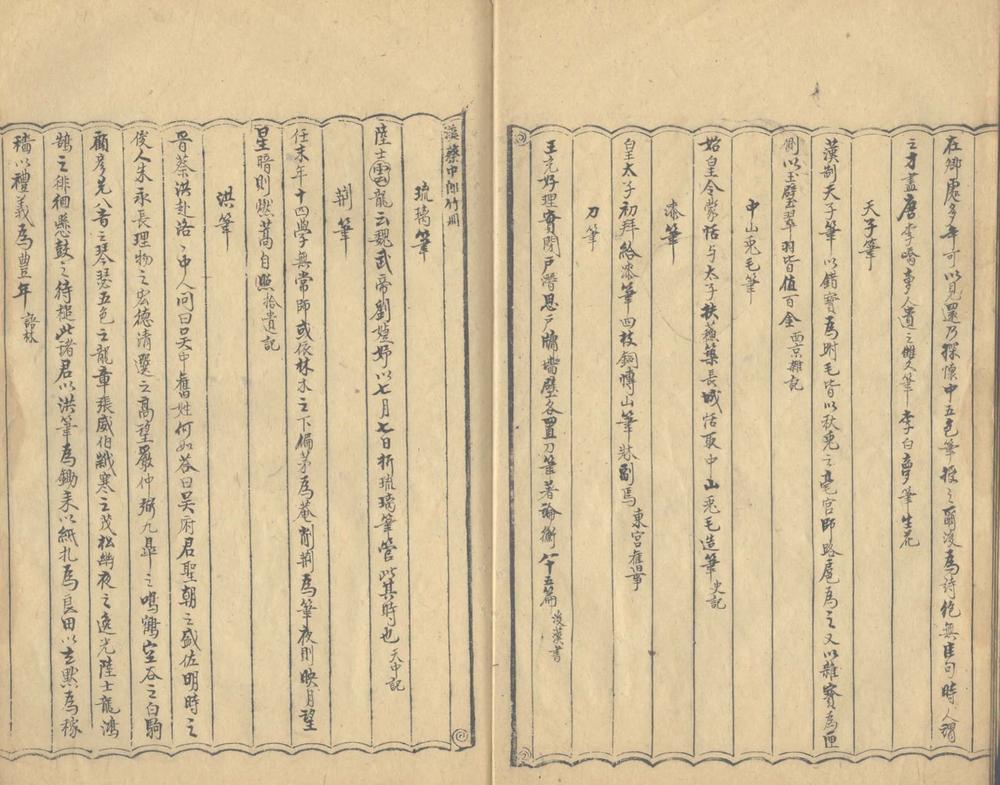 在卿處多年可以見還乃探懷中五色筆授之爾後為詩絕無佳句時人謂
之才盡唐李嶠夢人遺之雙筆李白夢筆生花
天子筆
漢制天子筆以錯寶為跗毛皆以秋兎之毫官師路扈為之又以雜寶為匣
側以玉璧翠羽皆值百金西京雜記
中山兎毛筆
始皇令蒙恬与太子扶蘇築長城恬取中山兎毛造筆史記
漆筆
皇太子初拜給漆筆四枝銅博山筆牀副焉東宮舊事
刀筆
王充好理實閉戶潛思戶牖墻壁各置刀筆著論衡八十五篇後漢書
漢蔡中郎竹冊
琉璃筆
陸士雲龍云魏武帝劉婕妤以七月七日折琉璃筆管此其時也天中記
荆筆
任末年十四學無常師或依林木之下編茅為菴削荆為筆夜則映月望
星暗則燃蒿自照拾遺記
洪筆
晋蔡洪赴洛洛中人问曰吴中舊姓何如答曰吴府君聖朝之盛佐明時之
俊人朱永長理物之宏德清選之高望嚴仲弼九皋之鳴鶴空谷之白駒
顧彦先八音之琴瑟五色之龍章張威伯歲寒之茂松幽夜之逸光陸士龍鴻
鵠之徘徊懸鼓之待槌此諸君以洪筆為鋤耒以紙札為良田以玄默為稼
穡以禮義為豐年語林